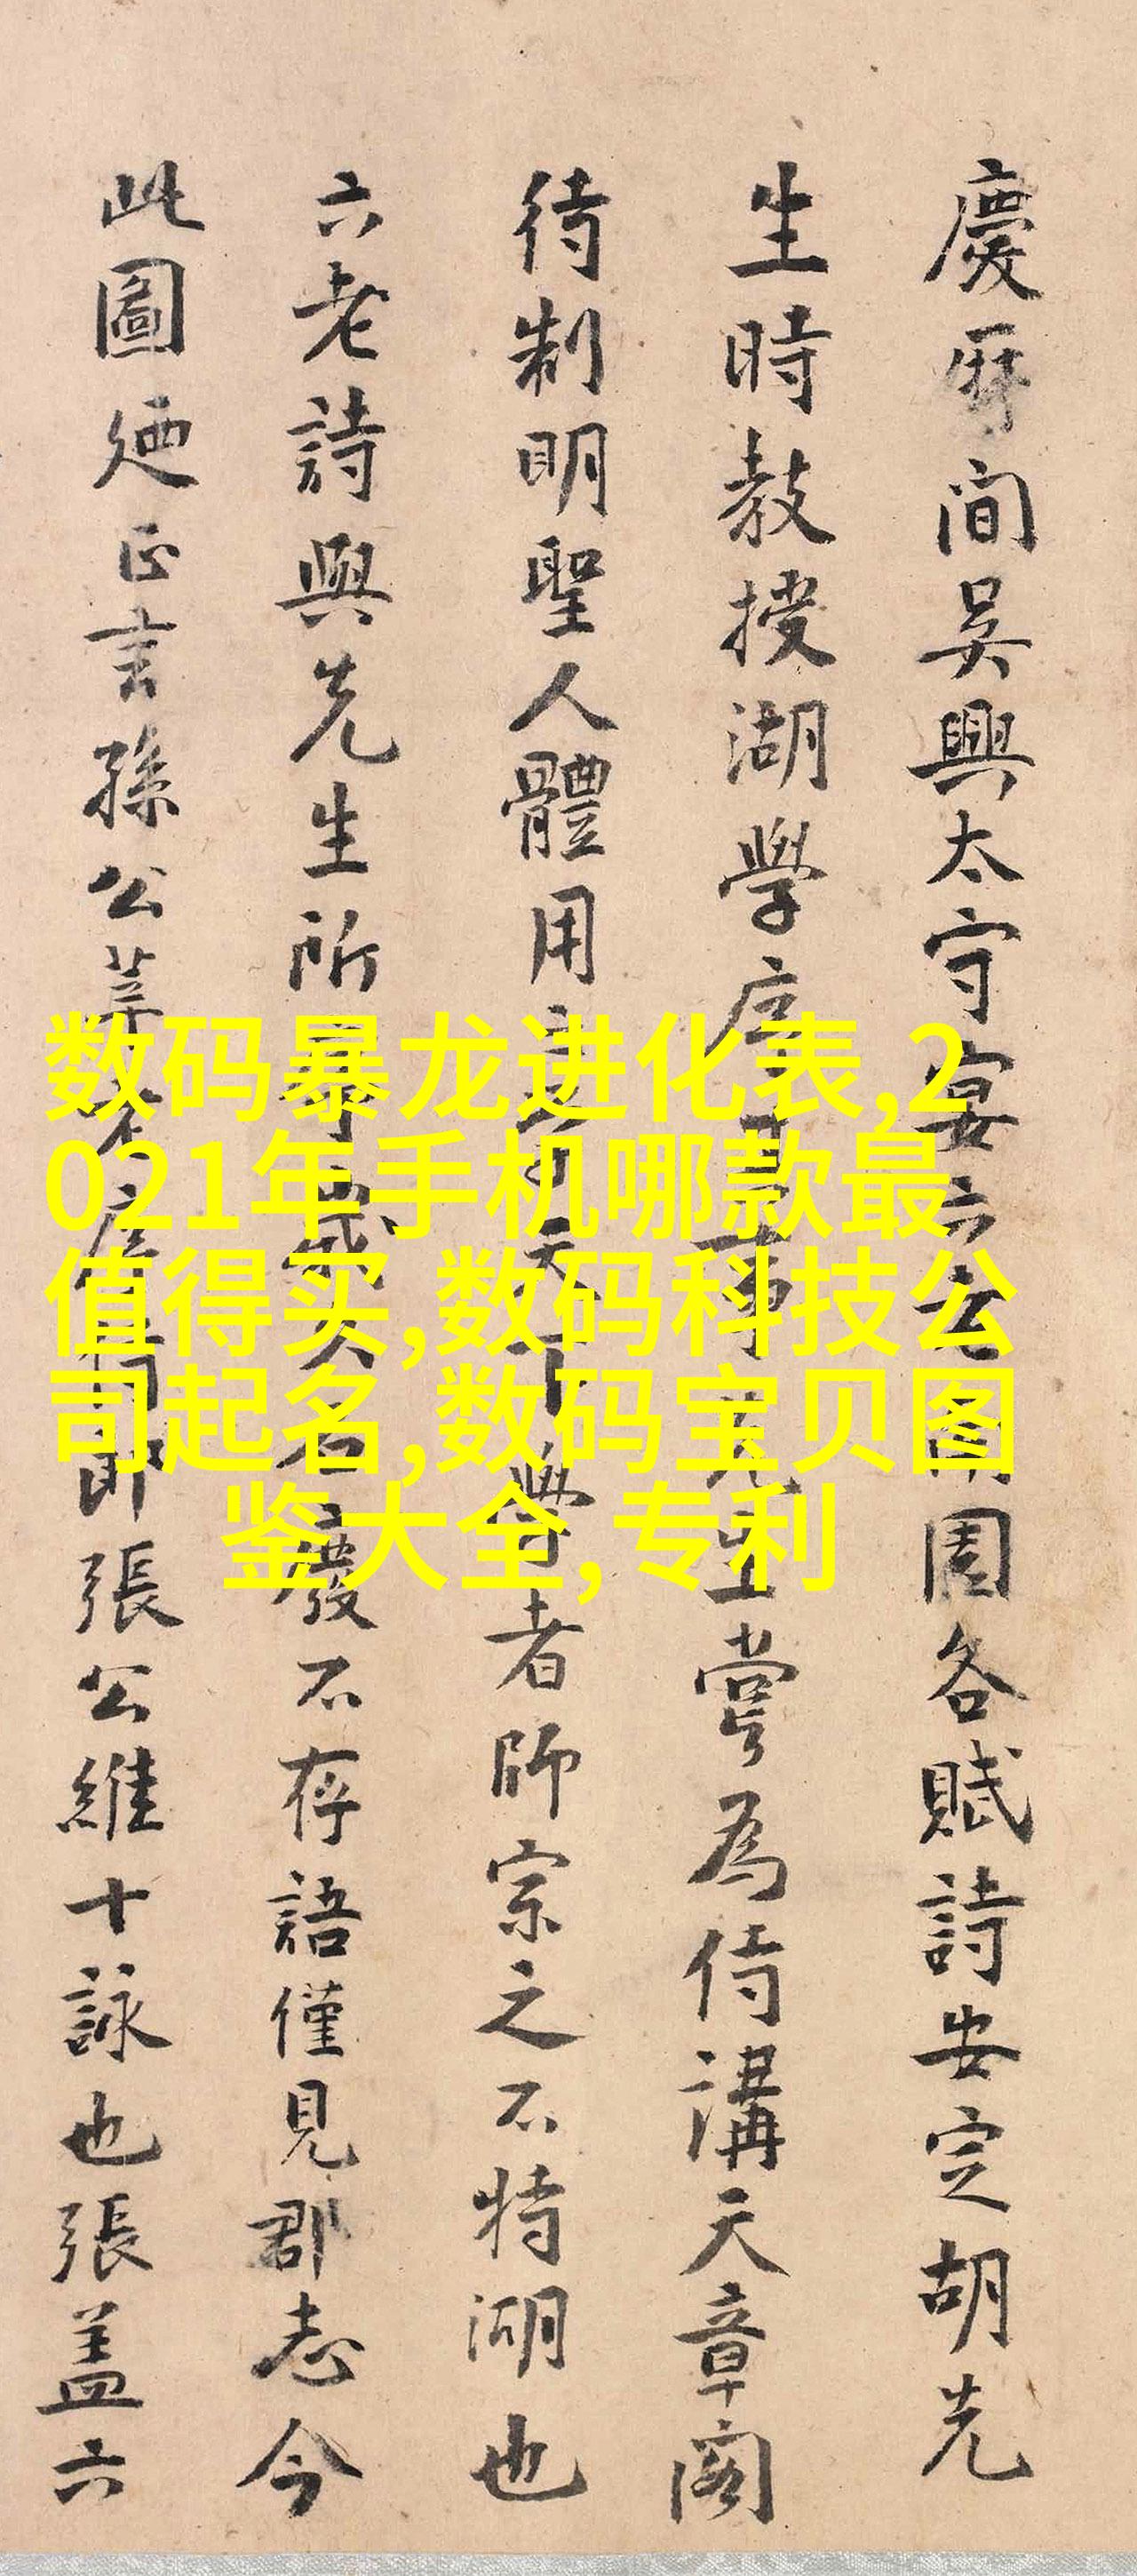 慶厤間吳興太守宴六老南園各賦詩安定胡先
生時教授湖學序其事先生嘗為侍講天章閣
待制明聖人體用天下學者師宗之不特湖也
六老詩與先生所歲久石廢不存語僅見郡志今
此圖廼正言孫公莘老郎張公維十詠也張盖六
数码暴龙进化表,2
021年手机哪款最
值得买,数码科技公
司起名,数码宝贝图
鉴大全,专利